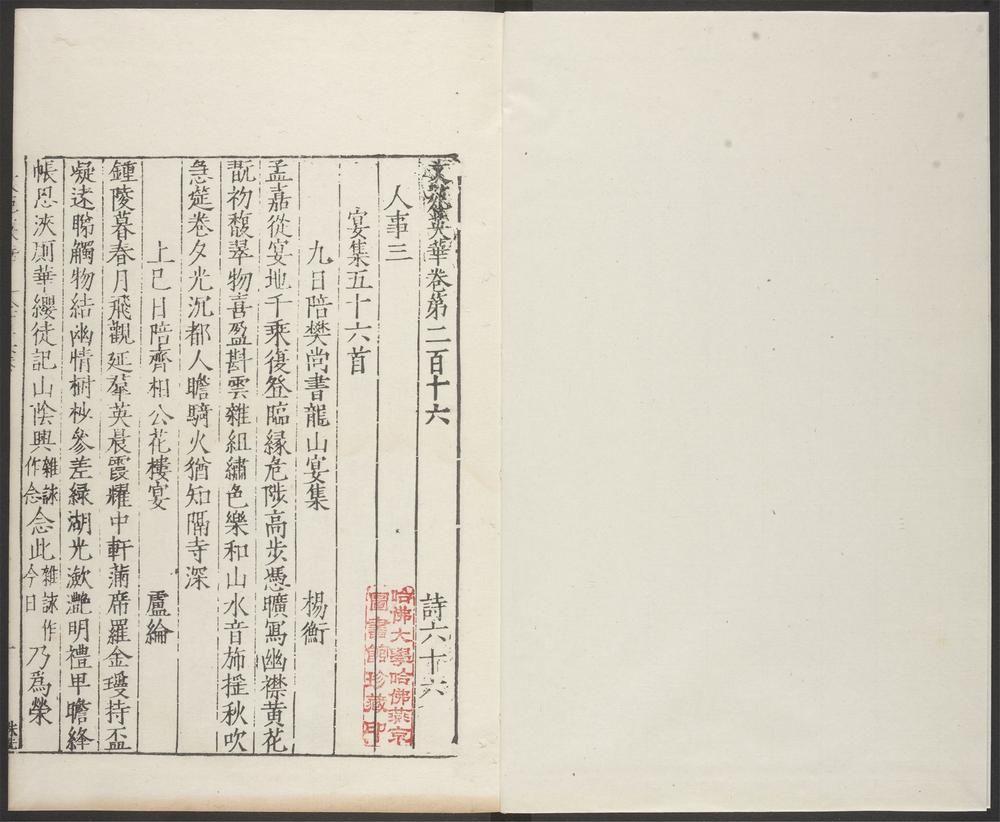 文苑英華卷第二百十六 詩六十六
人事三
宴集五十六首
九日陪樊尚書龍山宴集 楊衡
孟嘉從宴地千乘復登臨緣危陟高步憑曠寫幽襟黃花
翫初馥翠物喜盈斟雲雜組繡色樂和山水音旆搖秋吹
急筵卷夕光沉都人瞻騎火猶知隔寺深
上巳日陪齊相公花樓宴 盧綸
鍾陵暮春月飛觀延羣英晨霞耀中軒蒲席羅金瓊持盃
凝遠睇觸物結幽情樹杪參差綠湖光瀲灩明禮卑瞻絳
帳恩浹厠華纓徒記山陰興雜詠作念念此雜詠作今日乃爲榮
哈佛大學哈佛燕京
圖書館珍藏印